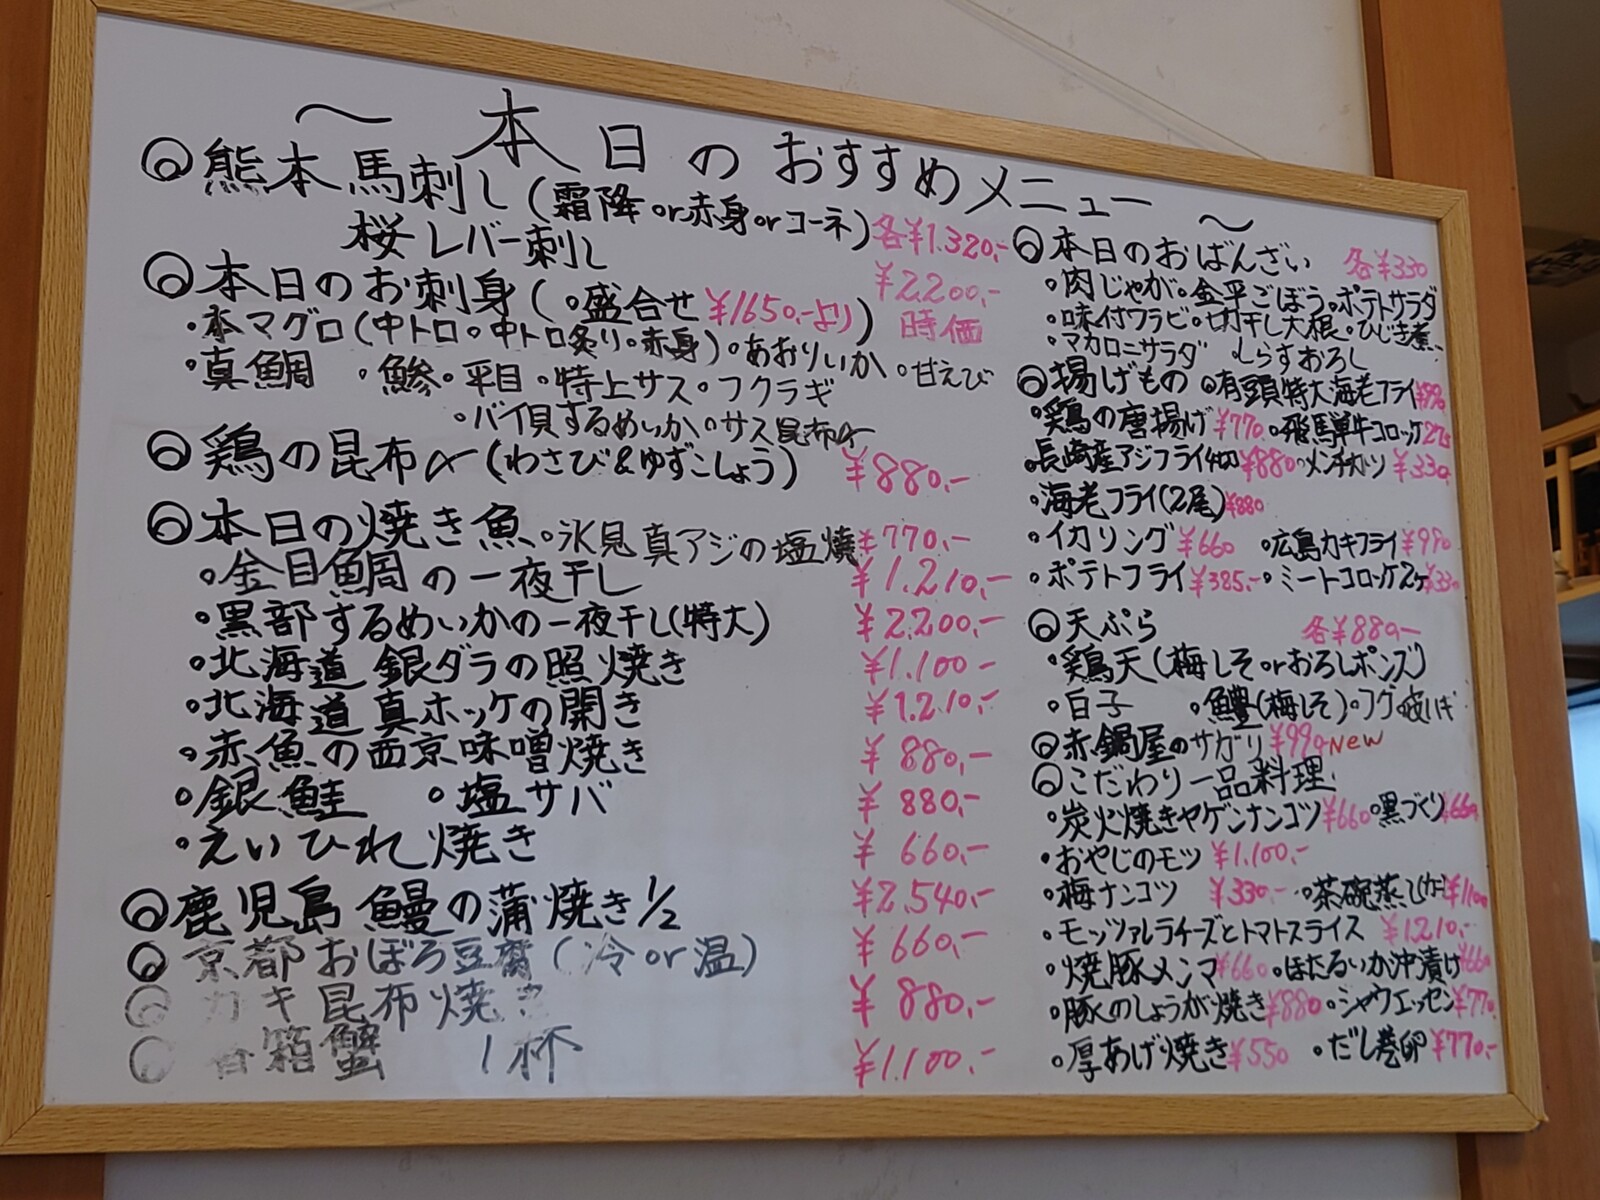 〜 本日のおすすめメニュー 〜
◎熊本馬刺し(霜降or赤身orコーネ) 各¥1.320.-
桜レバー刺し ¥2200.-
◎本日のお刺身(・盛合せ ¥1650.-より) 時価
・本マグロ(中トロ・中トロ炙り・赤身)・あおりいか・甘えび
・真鯛 ・鯵・平目・特上サス・フクラギ
・バイ貝するめいか・サス昆布〆
◎鶏の昆布〆(わさび&ゆずこしょう) ¥880.-
◎本日の焼き魚・氷見真アジの塩焼 ¥770.-
・金目鯛の一夜干し ¥1.210.-
・黒部するめいかの一夜干し(特大) ¥2.200.-
・北海道 銀ダラの照焼き ¥1.100-
・北海道真ホッケの開き ¥1.210.-
・赤魚の西京味噌焼き ¥880.-
・銀鮭 ・塩サバ ¥880.-
・えいひれ焼き ¥660.-
◎鹿児島 鰻の蒲焼き1/2 ¥2.540.-
◎京都おぼろ豆腐(冷or温) ¥660.-
◎カキ昆布焼き ¥880.-
◎香箱蟹 1杯 ¥1.100.-
◎本日のおばんざい 各¥330
・肉じゃが・金平ごぼう・ポテトサラダ
・味付ワラビ・切干し大根・ひじき煮
・マカロニサラダ しらすおろし
◎揚げもの ・有頭特大海老フライ
・鶏の唐揚げ¥770.・飛騨牛コロッケ
・長崎産アジフライ ¥880・メンチカツ ¥330
・海老フライ(2尾)¥880
・イカリング¥660 ・広島カキフライ¥990
・ポテトフライ¥385.-・ミートコロッケ2ヶ¥330
◎天ぷら 各¥880-
・鶏天(梅しそorおろしポンズ)
・白子 ・鱧(梅しそ)・フグ
◎赤鍋屋のサガリ¥990 NEW
◎こだわり一品料理
・炭火焼きヤゲンナンコツ¥660・黒づくり¥660
・おやじのモツ ¥1.100.-
・梅ナンコツ ¥330.- ・茶碗蒸し
・モッツァレラチーズとトマトスライス ¥1.210.-
・焼豚メンマ¥660・ほたるいか沖漬け¥660
・豚のしょうが焼き¥880・シャウエッセン¥770.
・厚あげ焼き¥550 ・だし巻卵¥770.-